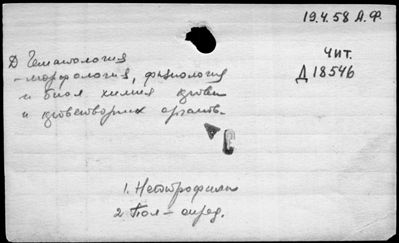 19.4.58 А.Ф.
Чит.
Д 18546
Д Гематология
- морфология, физиология
и биол химия крови
и кроветворных органов.
1. Нейтрофилы
2. Пол - опред.